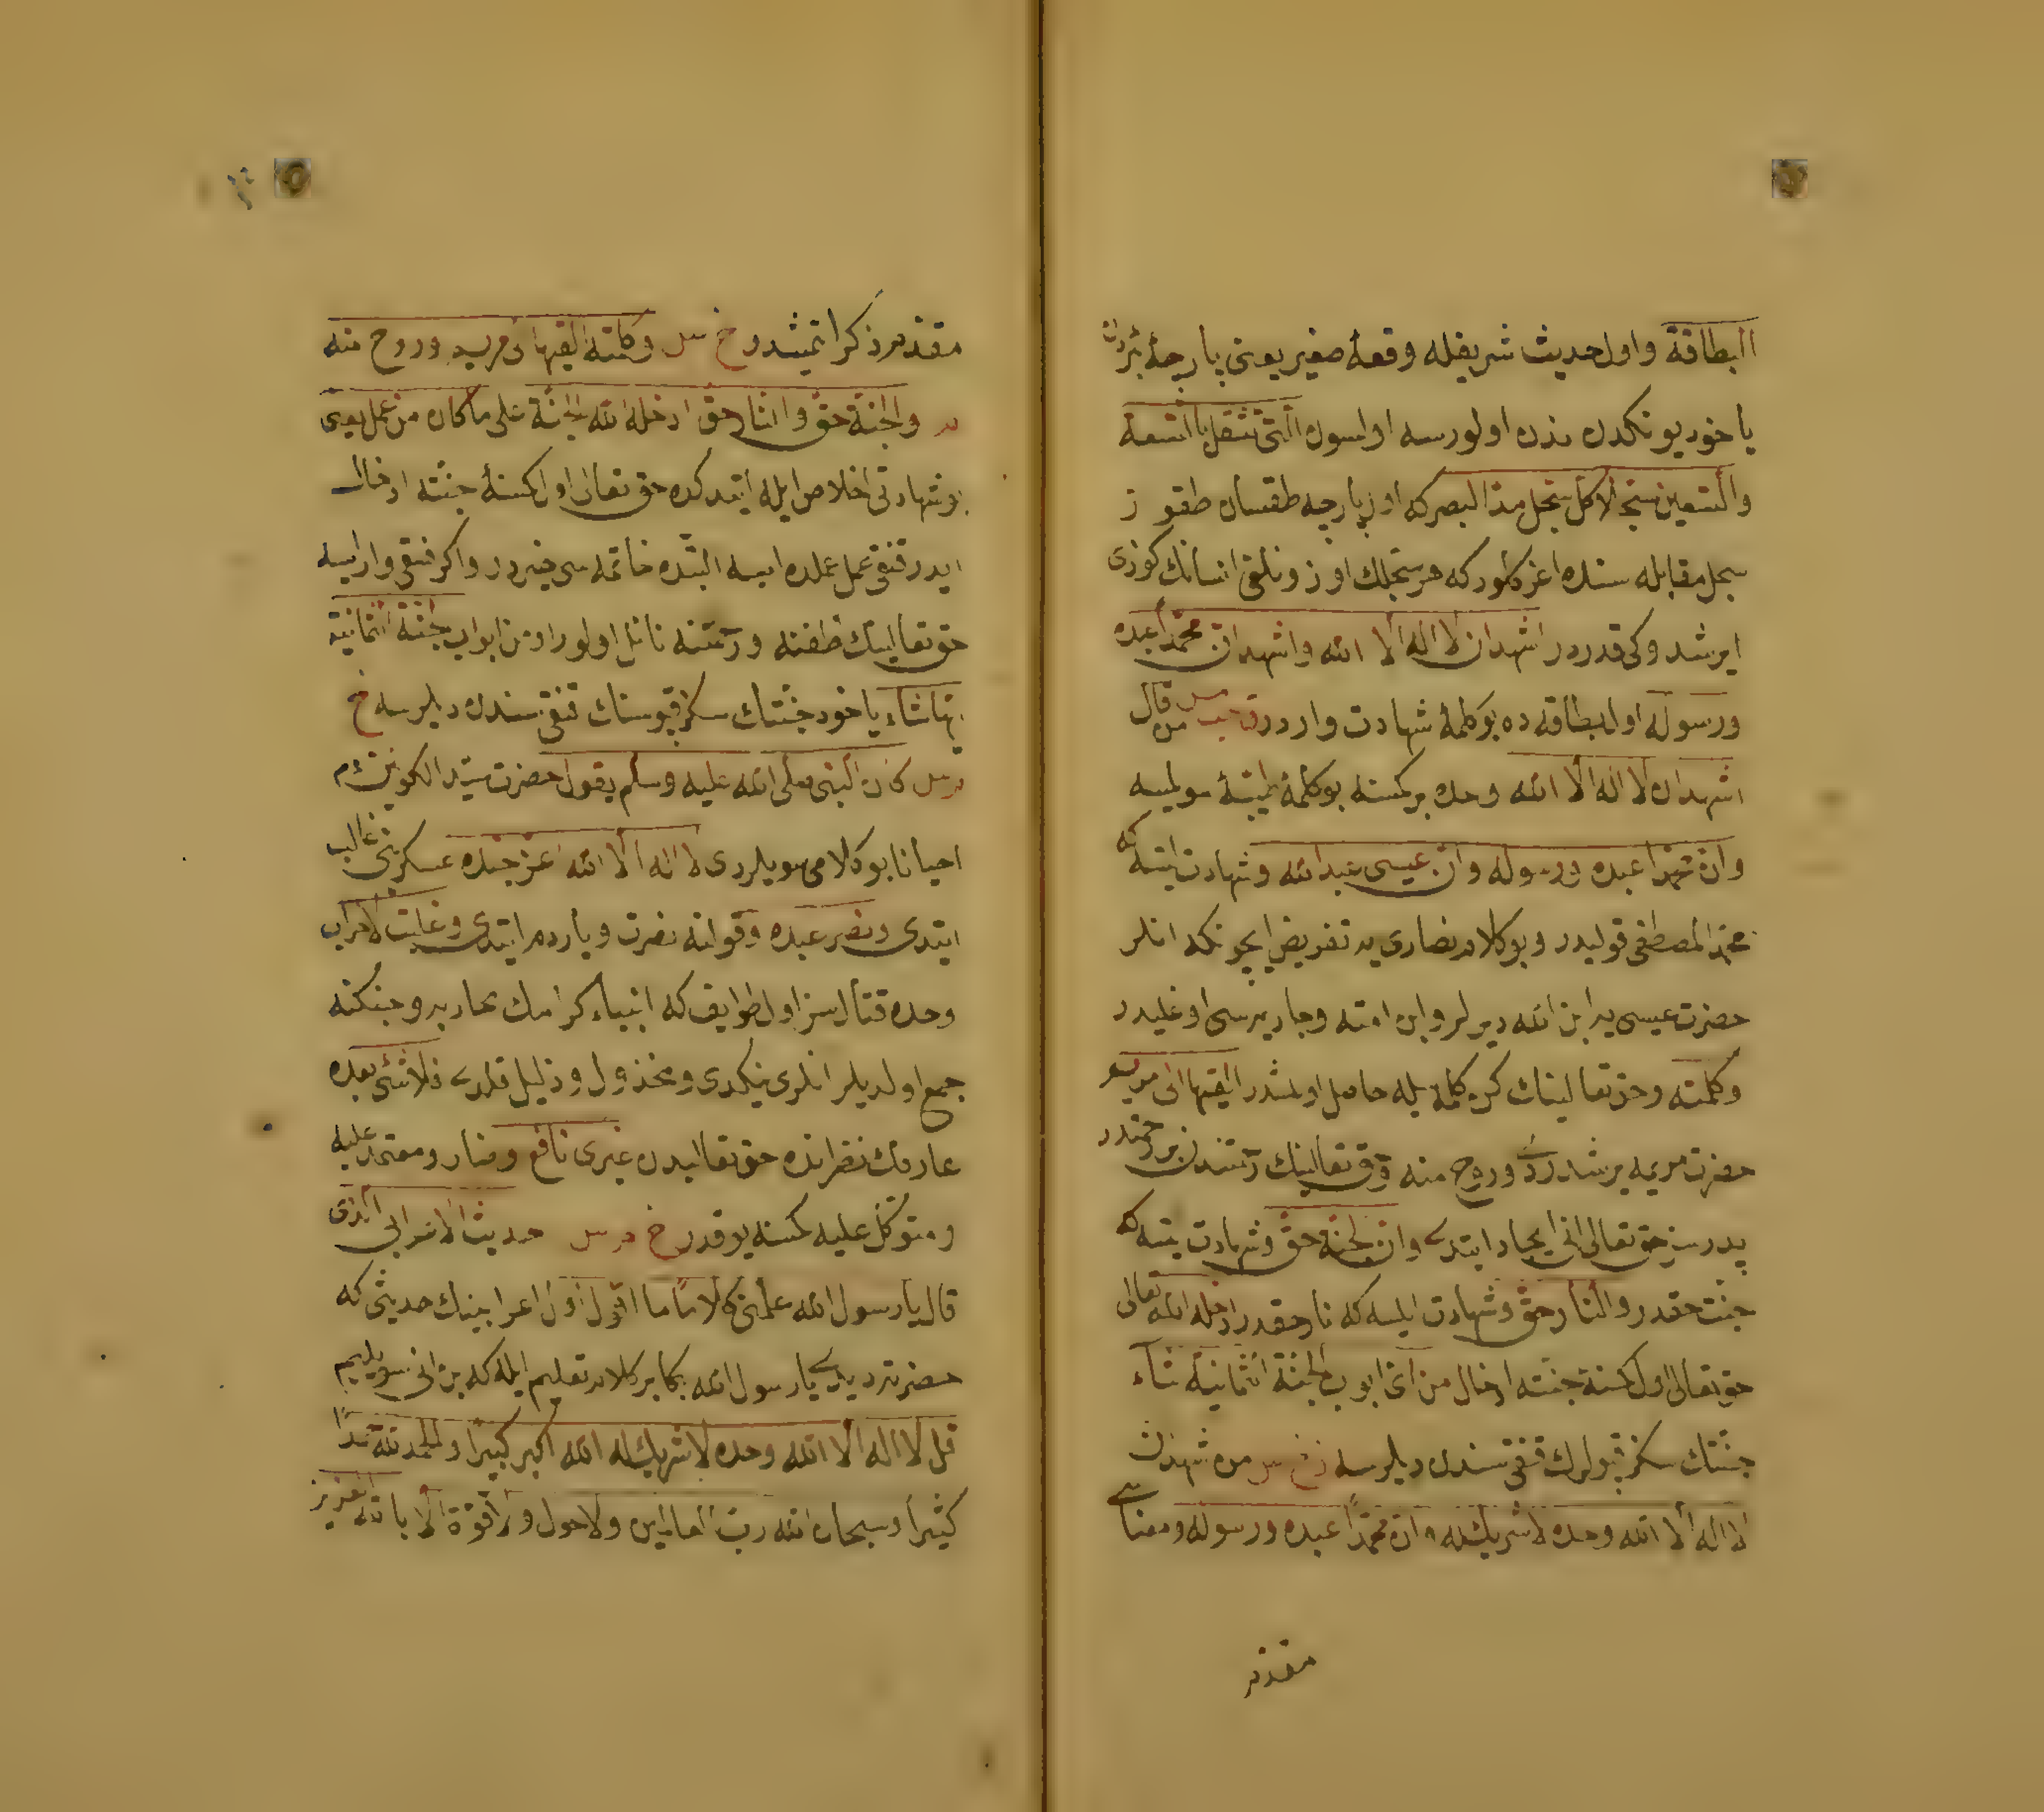 البطاقة واول حديث شريفله وقعۀ صغير يعنى پارچۀ
ياخود بو نكدن اولورسه اولسون التى تثقل بالتسعة
والتسعين سجلا كل سجل مد البصر كه اول پارچه طقسان طقوز
سجل مقابله سنده اغر كلور كه هر سجلك اوزونلغى انسانك كوزى
ايرشدوكى قدردر اشهد ان لا اله الا الله واشهد ان محمدا عبده
ورسوله اول بطاقه ده بو كلمۀ شهادت واردر من قال
اشهد ان لا اله الا الله وحده بر كمسنه بو كلمۀ طيبۀ سويليسه
وان محمدا عبده ورسوله وان عيسى عبد الله وشهادت ايتسه كه
محمد المصطفى قوليدر وبو كلام نصارى يه تعريض ايچونكه انلر
حضرت عيسى يه ابن الله ديرلر وابن امته وجاريه سى اوغليدر
وكلمته وحق تعالينك كن كلمه سيله حاصل اولمشدر القيها الى مريم
حضرت مريمه يرشدردى وروح منه وحق تعالينك رحمتندن بر رحمتدر
پدرسز حق تعالى انى ايجاد ايتدى وان الجنة حق وشهادت ايتسه كه
جنت حقدر والنار حق وشهادت ايلسه كه نار حقدر ادخله الله تعالى
حق تعالى اول كمسنه جنته ادخال من اى ابواب الجنة الثمانية شاء
جنتك سكز قپولرك قنقى سندن ديلرسه خ س من شهد ان
لا اله الا الله وحده لا شريك له وان محمدا عبده ورسوله ومعناسى
مقدم
مقدم ذكر اتمشدر خ س وكلمته القيها الى مريم وروح منه
والجنة حق والنار حق ادخله الله الجنة على ما كان من عمل يعنى
بو شهادتى اخلاص ايله ايتدكده حق تعالى اول كمسنۀ جنته ادخال
ايدر قنقى عمل عملده ايسه البتده خاتمه سى خيردر واكر فسقى وار ايسه
حق تعالينك لطفنه ورحمتنه نائل اولور او من ابواب الجنة الثمانية
ايها شاء ياخود جنتك سكز قپوسنك قنقى سندن ديلرسه خ
م س كان النبى صلى الله عليه وسلم يقول حضرت سيد الكونين
احيانا بو كلامى سويلردى لا اله الا الله اعز جنده عسكرينى غالب
ايتدى ونصر عبده وقولنه نصرت وياردم ايتدى وغلب الاحزاب
وحده قتالسز اول طوايف كه انبياء كرامك محاربه وجنكنه
جمع اولديلر انلرى يكدى ومخذول وذليل قلدى فلا شئ بعده
عارفك نظرنده حق تعاليدن غيرى نافع وضار ومعتمد عليه
ومتوكل عليه كمسنه يوقدر خ م س حديث الاعرابى الذى
قال يا رسول الله علمنى كلاما ما اقول اول اعرابينك حديثى كه
حضرته ديدى يا رسول الله بكا بر كلام تعليم ايله كه بن انى سويليم
قل لا اله الا الله وحده لا شريك له الله اكبر كبيرا والحمد لله حمدا
كثيرا وسبحان الله رب العالمين ولا حول ولا قوة الا بالله العزيز